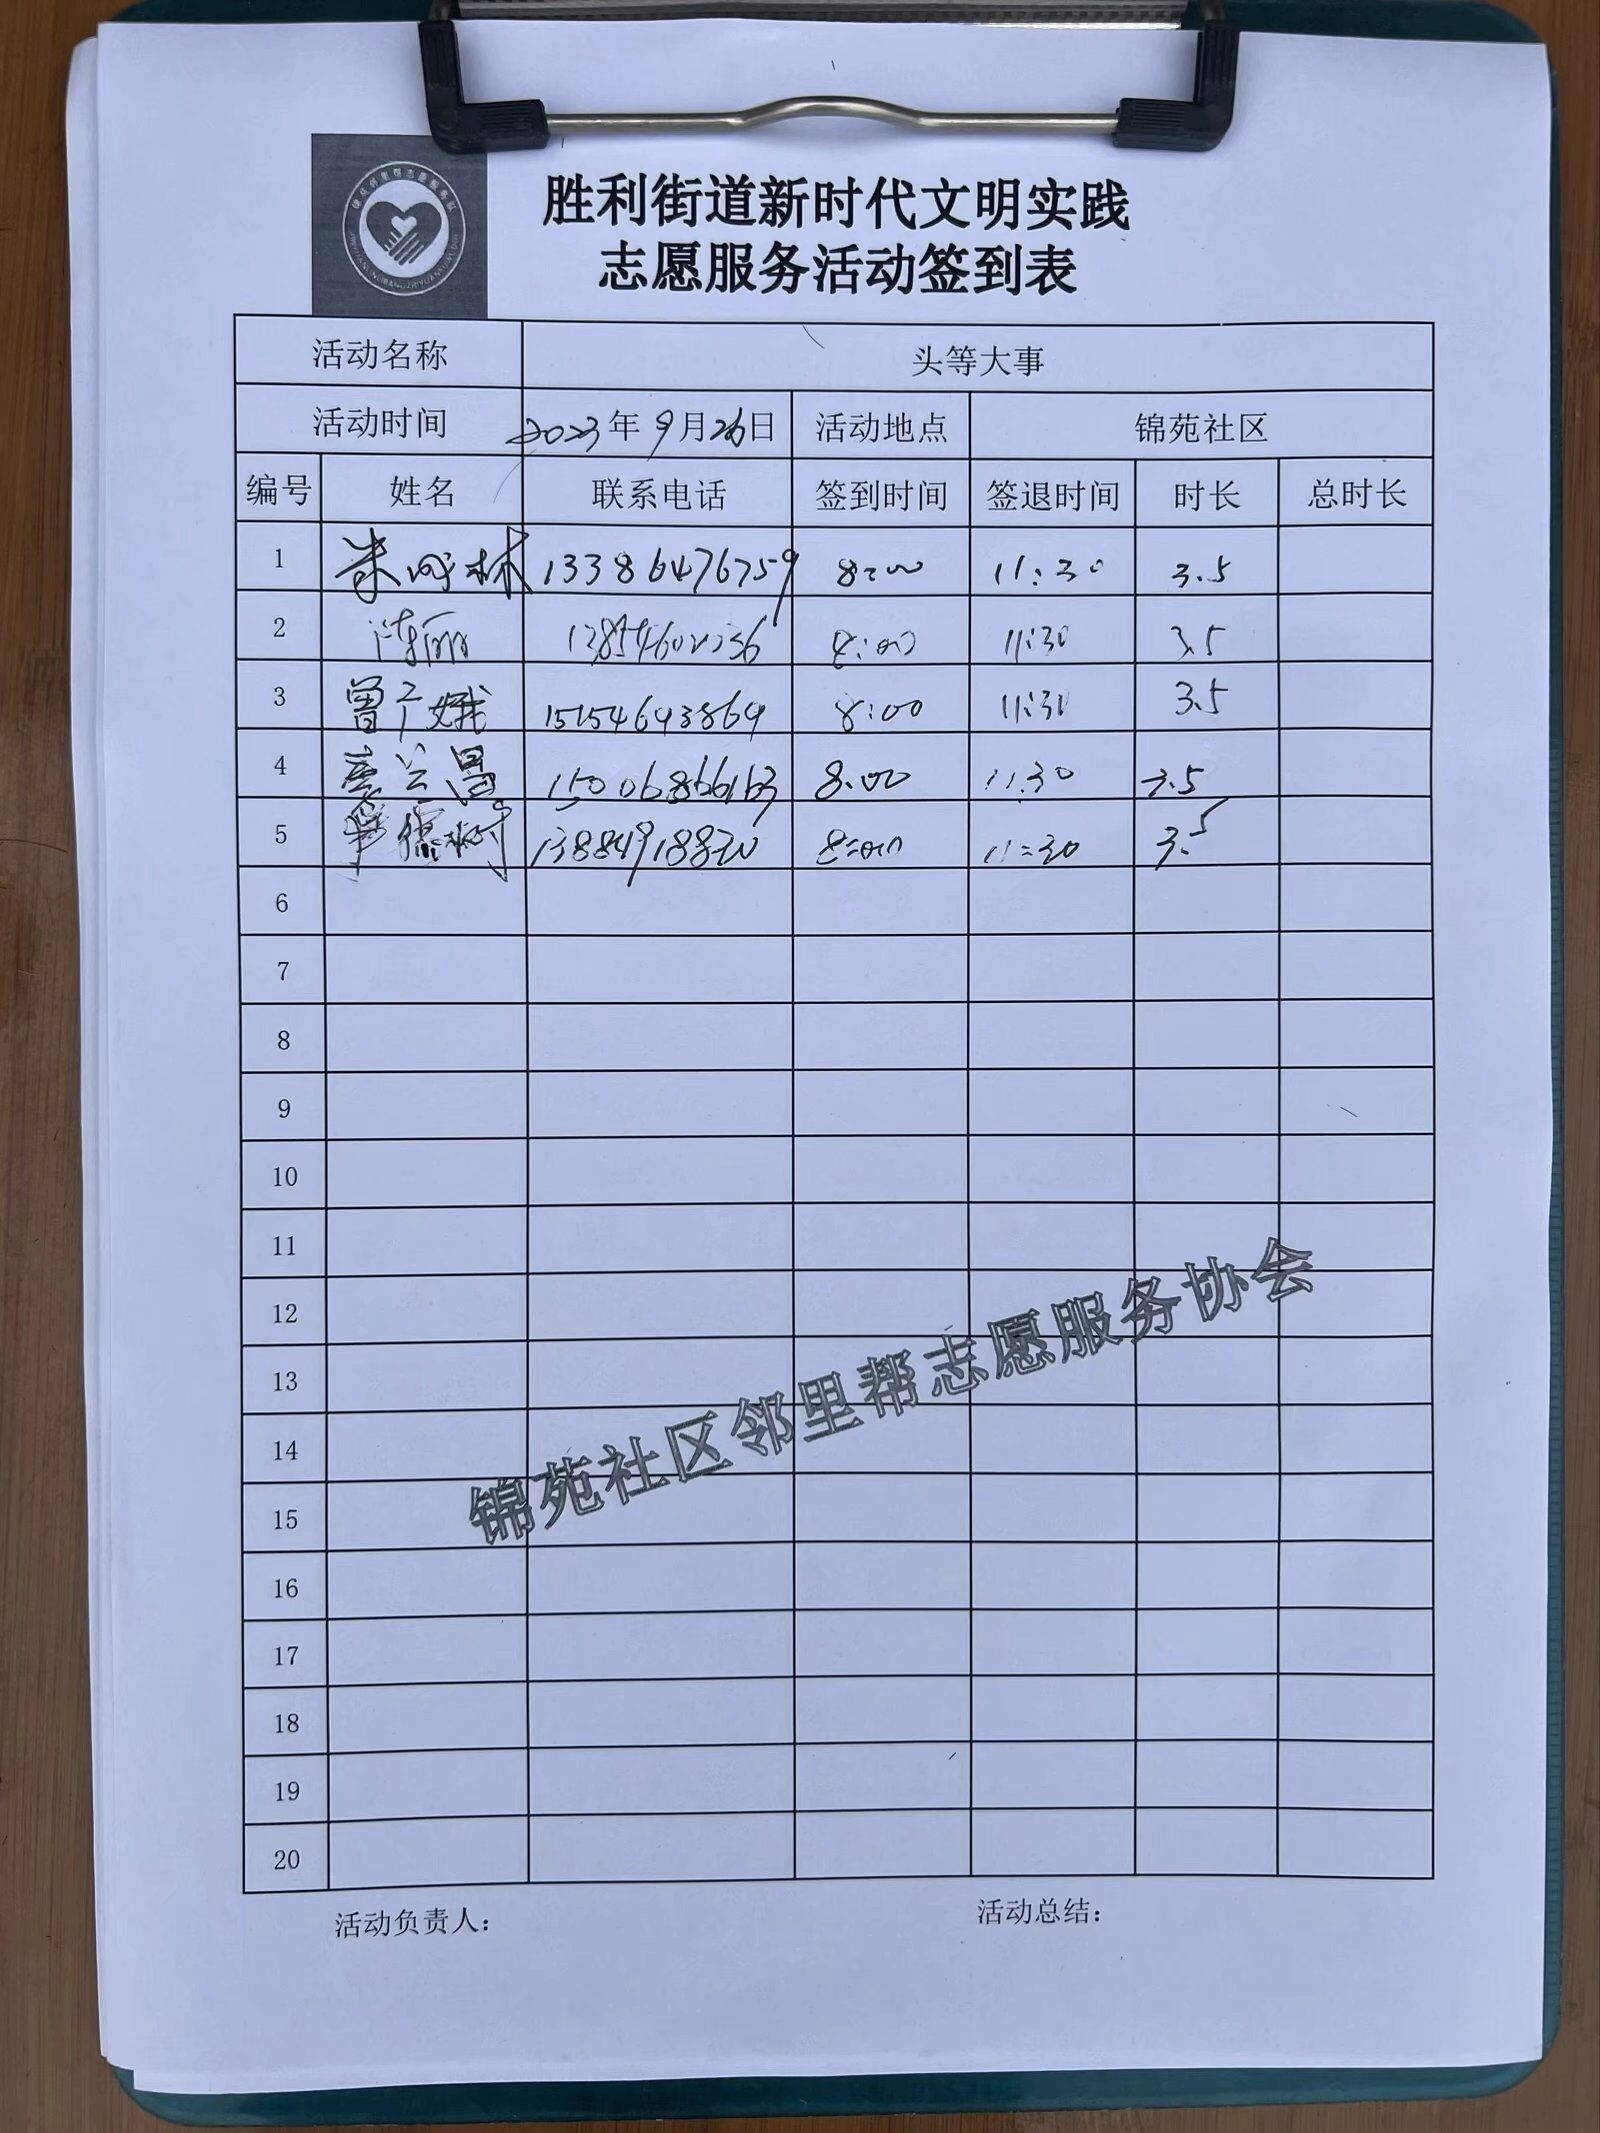 胜利街道新时代文明实践
志愿服务活动签到表
活动名称 头等大事
活动时间 2023年9月26日 活动地点 锦苑社区
编号 姓名 联系电话 签到时间 签退时间 时长 总时长
1 13386476759 8:00 11:30 3.5
2 陈丽 8:00 11:30 3.5
3 曾广娥 15154693869 8:00 11:30 3.5
4 15006866163 8:00 11:30 3.5
5 8:00 11:30 3.5
6
7
8
9
10
11
12
13
14
15
16
17
18
19
20
锦苑社区邻里帮志愿服务协会
活动负责人：
活动总结：